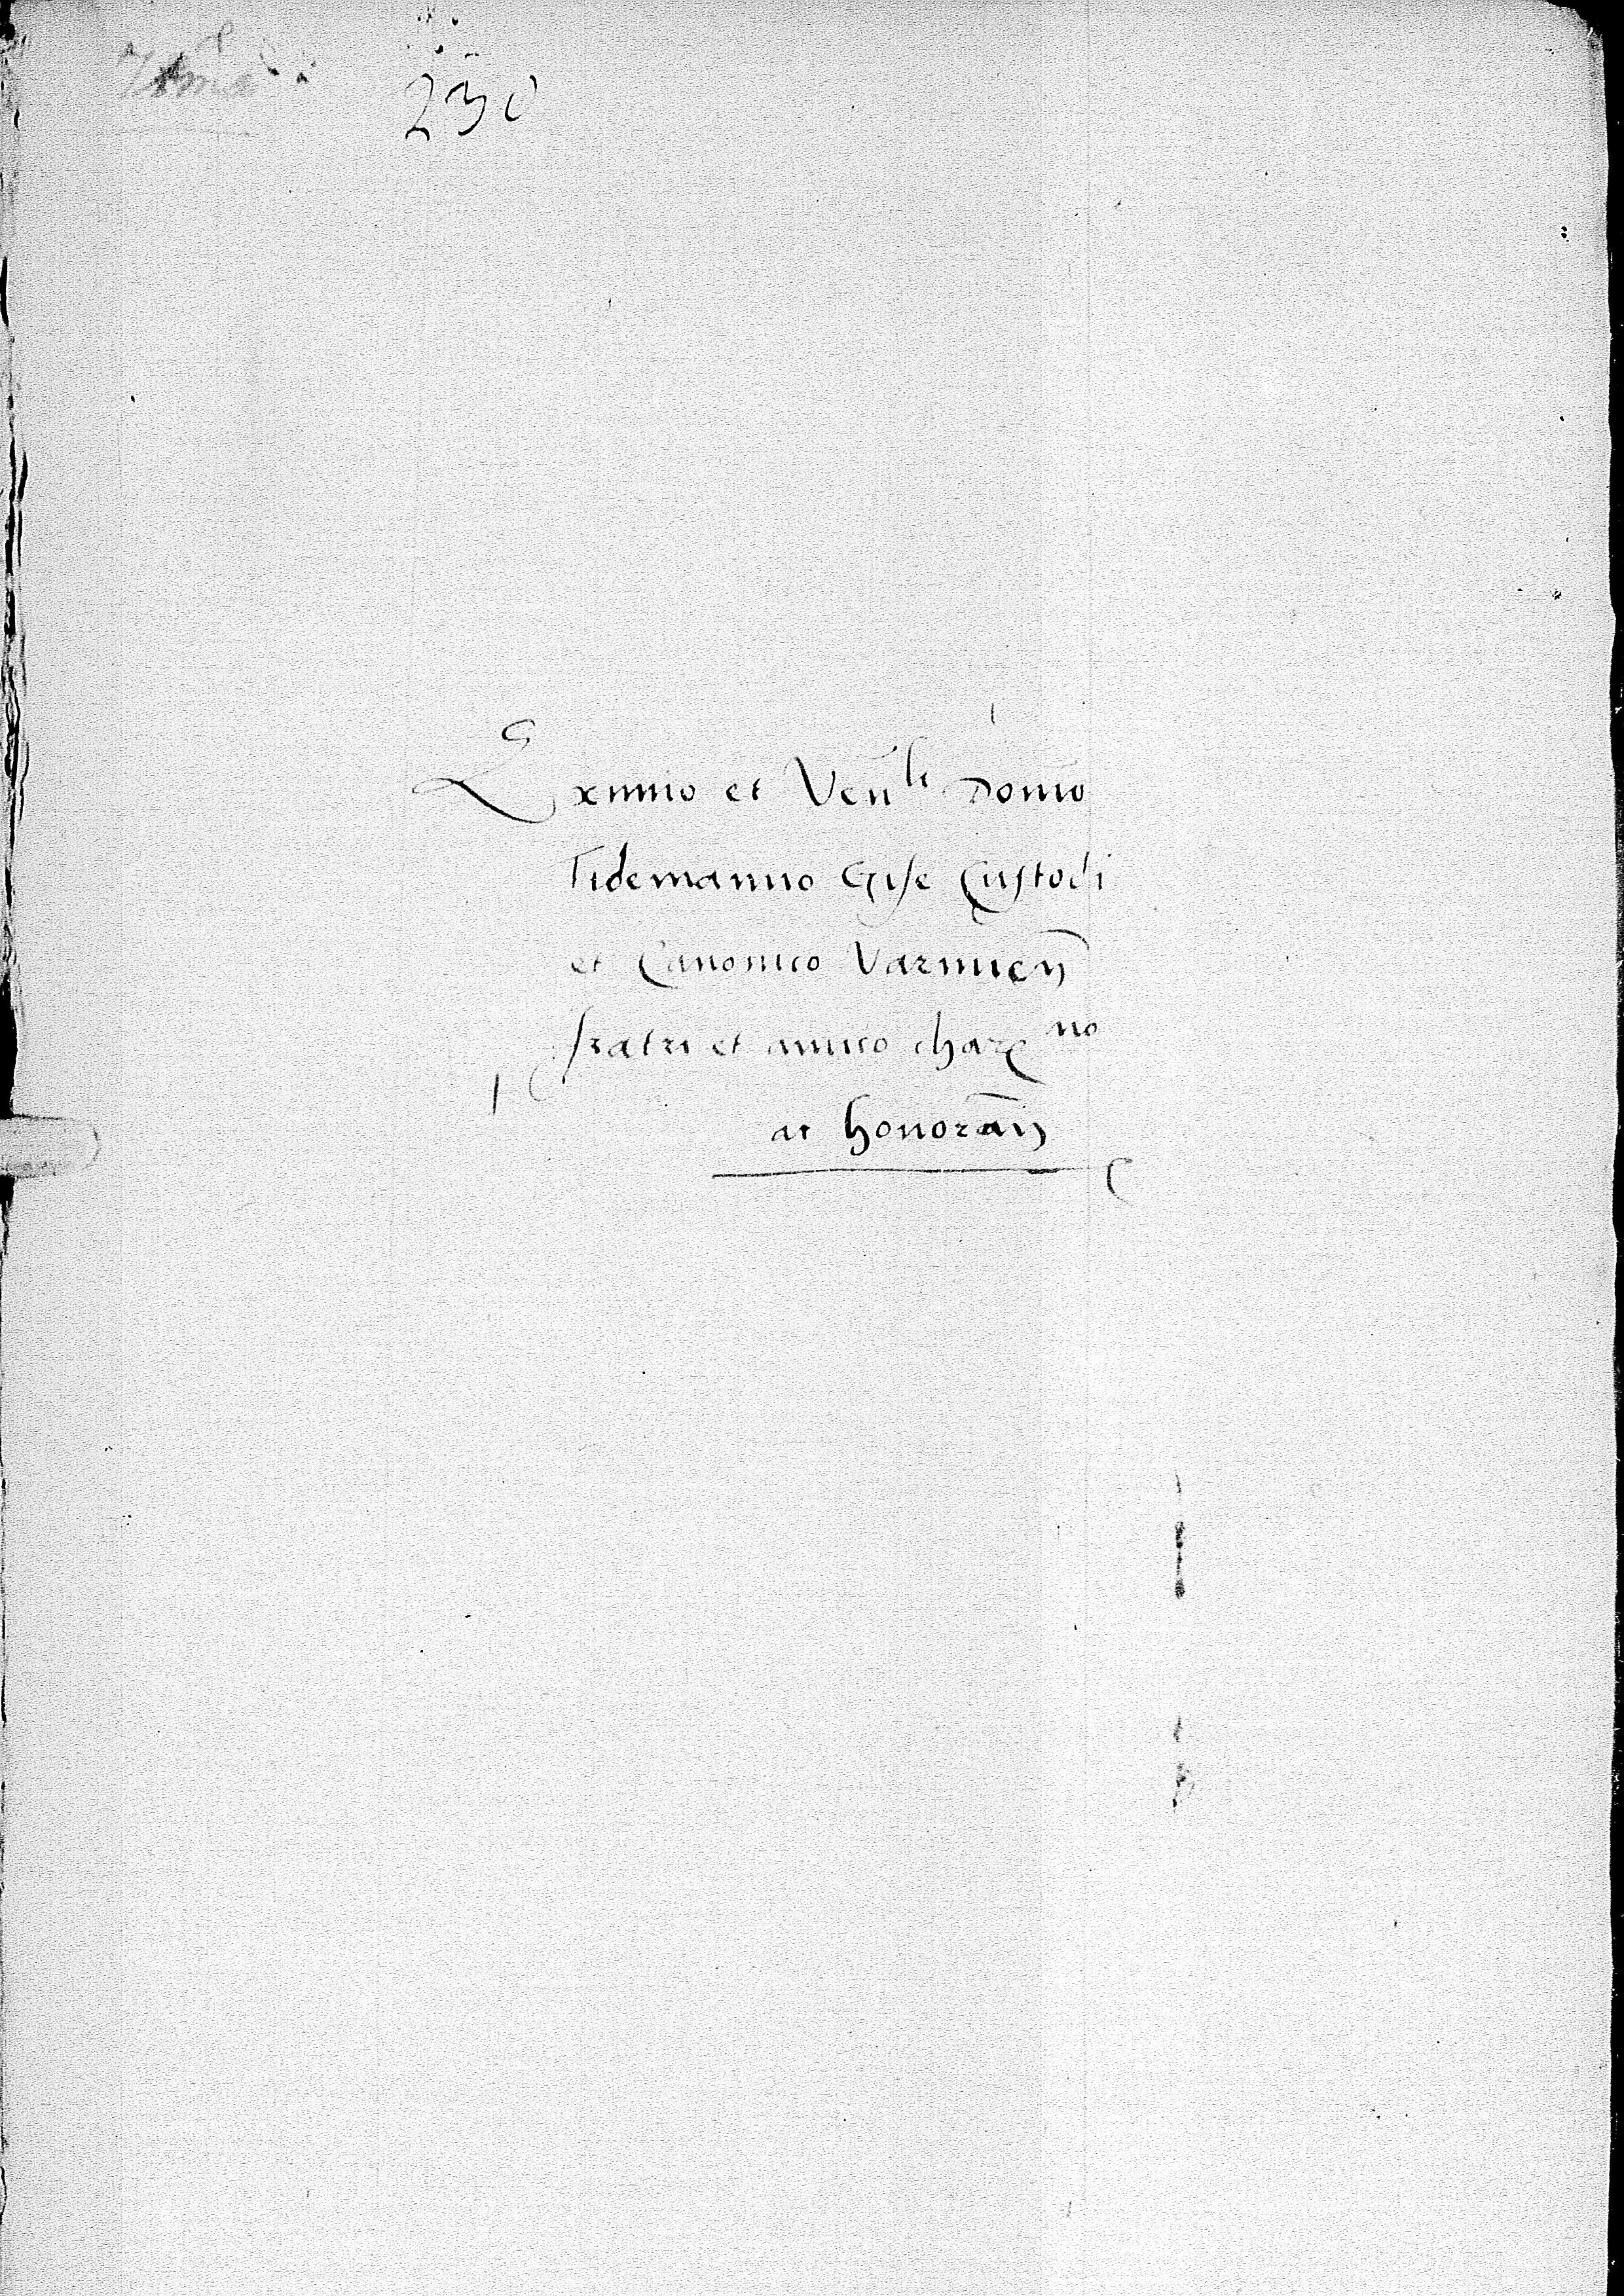 230
Eximio et Ven^li Domino
Tidemanno Gise Custodi
et Canonico Varmien̄
fratri et amico char^mo
ac honoran̄